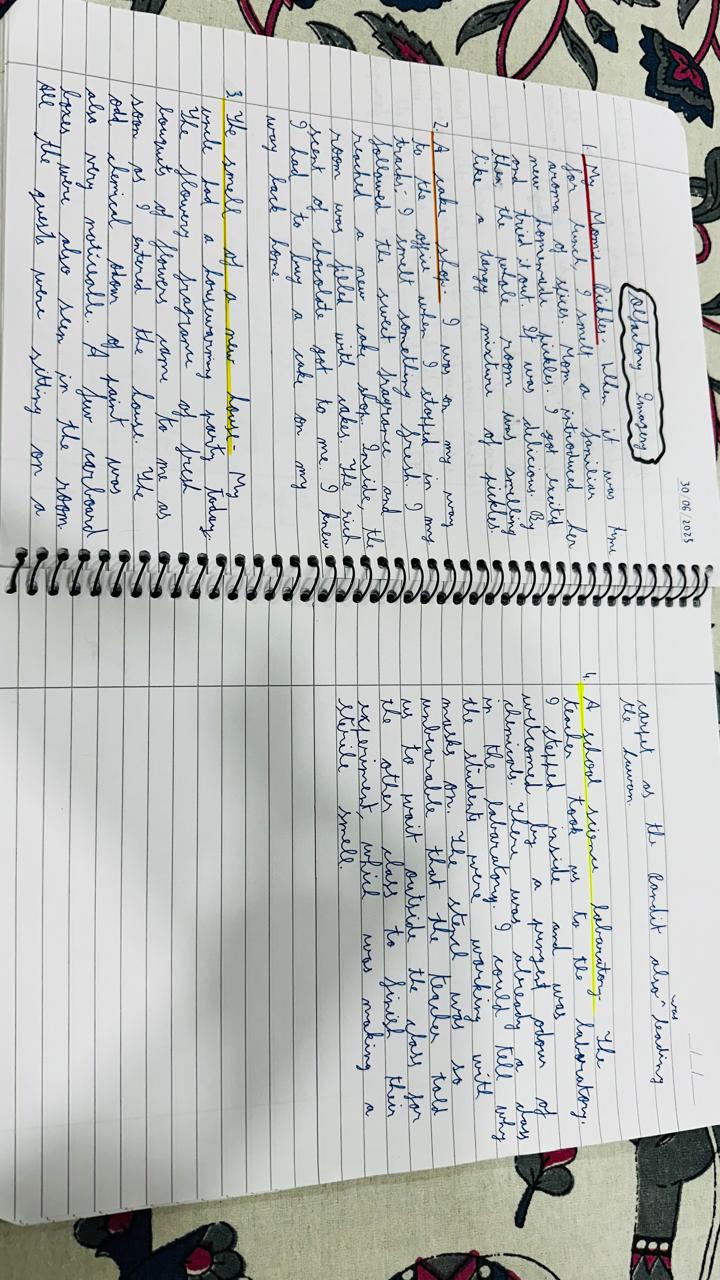 30/06/2025
Olfatory Imagery
1. My Mom's Pickles- When it was time
for lunch, I smelt a familier
aroma of spices. Mom introduced her
new homemade pickles. I got excited
and tried it out. It was delicious. By
then, the whole room was smelling
like a tangy mixture of pickles.
2. A cake shop- I was on my way
to the office when I stopped in my
tracks. I smelt something fresh. I
followed the sweet fragrance and
reached a new cake shop. Inside, the
room was filled with cakes. The rich
scent of chocolate got to me. I knew
I had to buy a cake on my
way back home.
3. The smell of a new house- My
uncle had a housewarming party today.
The flowery fragrance of fresh
bouquets of flowers came to me as
soon as I enterd the house. The
odd chemical odour of paint was
also very noticeable. A few carboard
boxes were also seen in the room.
All the guests were sitting on a
_/_/__
carpet as the Pandit also was leading
the hawan.
4. A school science labaratory- The
teacher took us to the laboratory.
I stepped inside and was
welcomed by a pungent odour of
chemicals. There was already a class
in the labaratory. I could tell why
the students were working with
masks on. The stench was so
unbearable that the teacher told
us to wait outside the class for
the other class to finish their
experiment, which was making a
sterile smell.